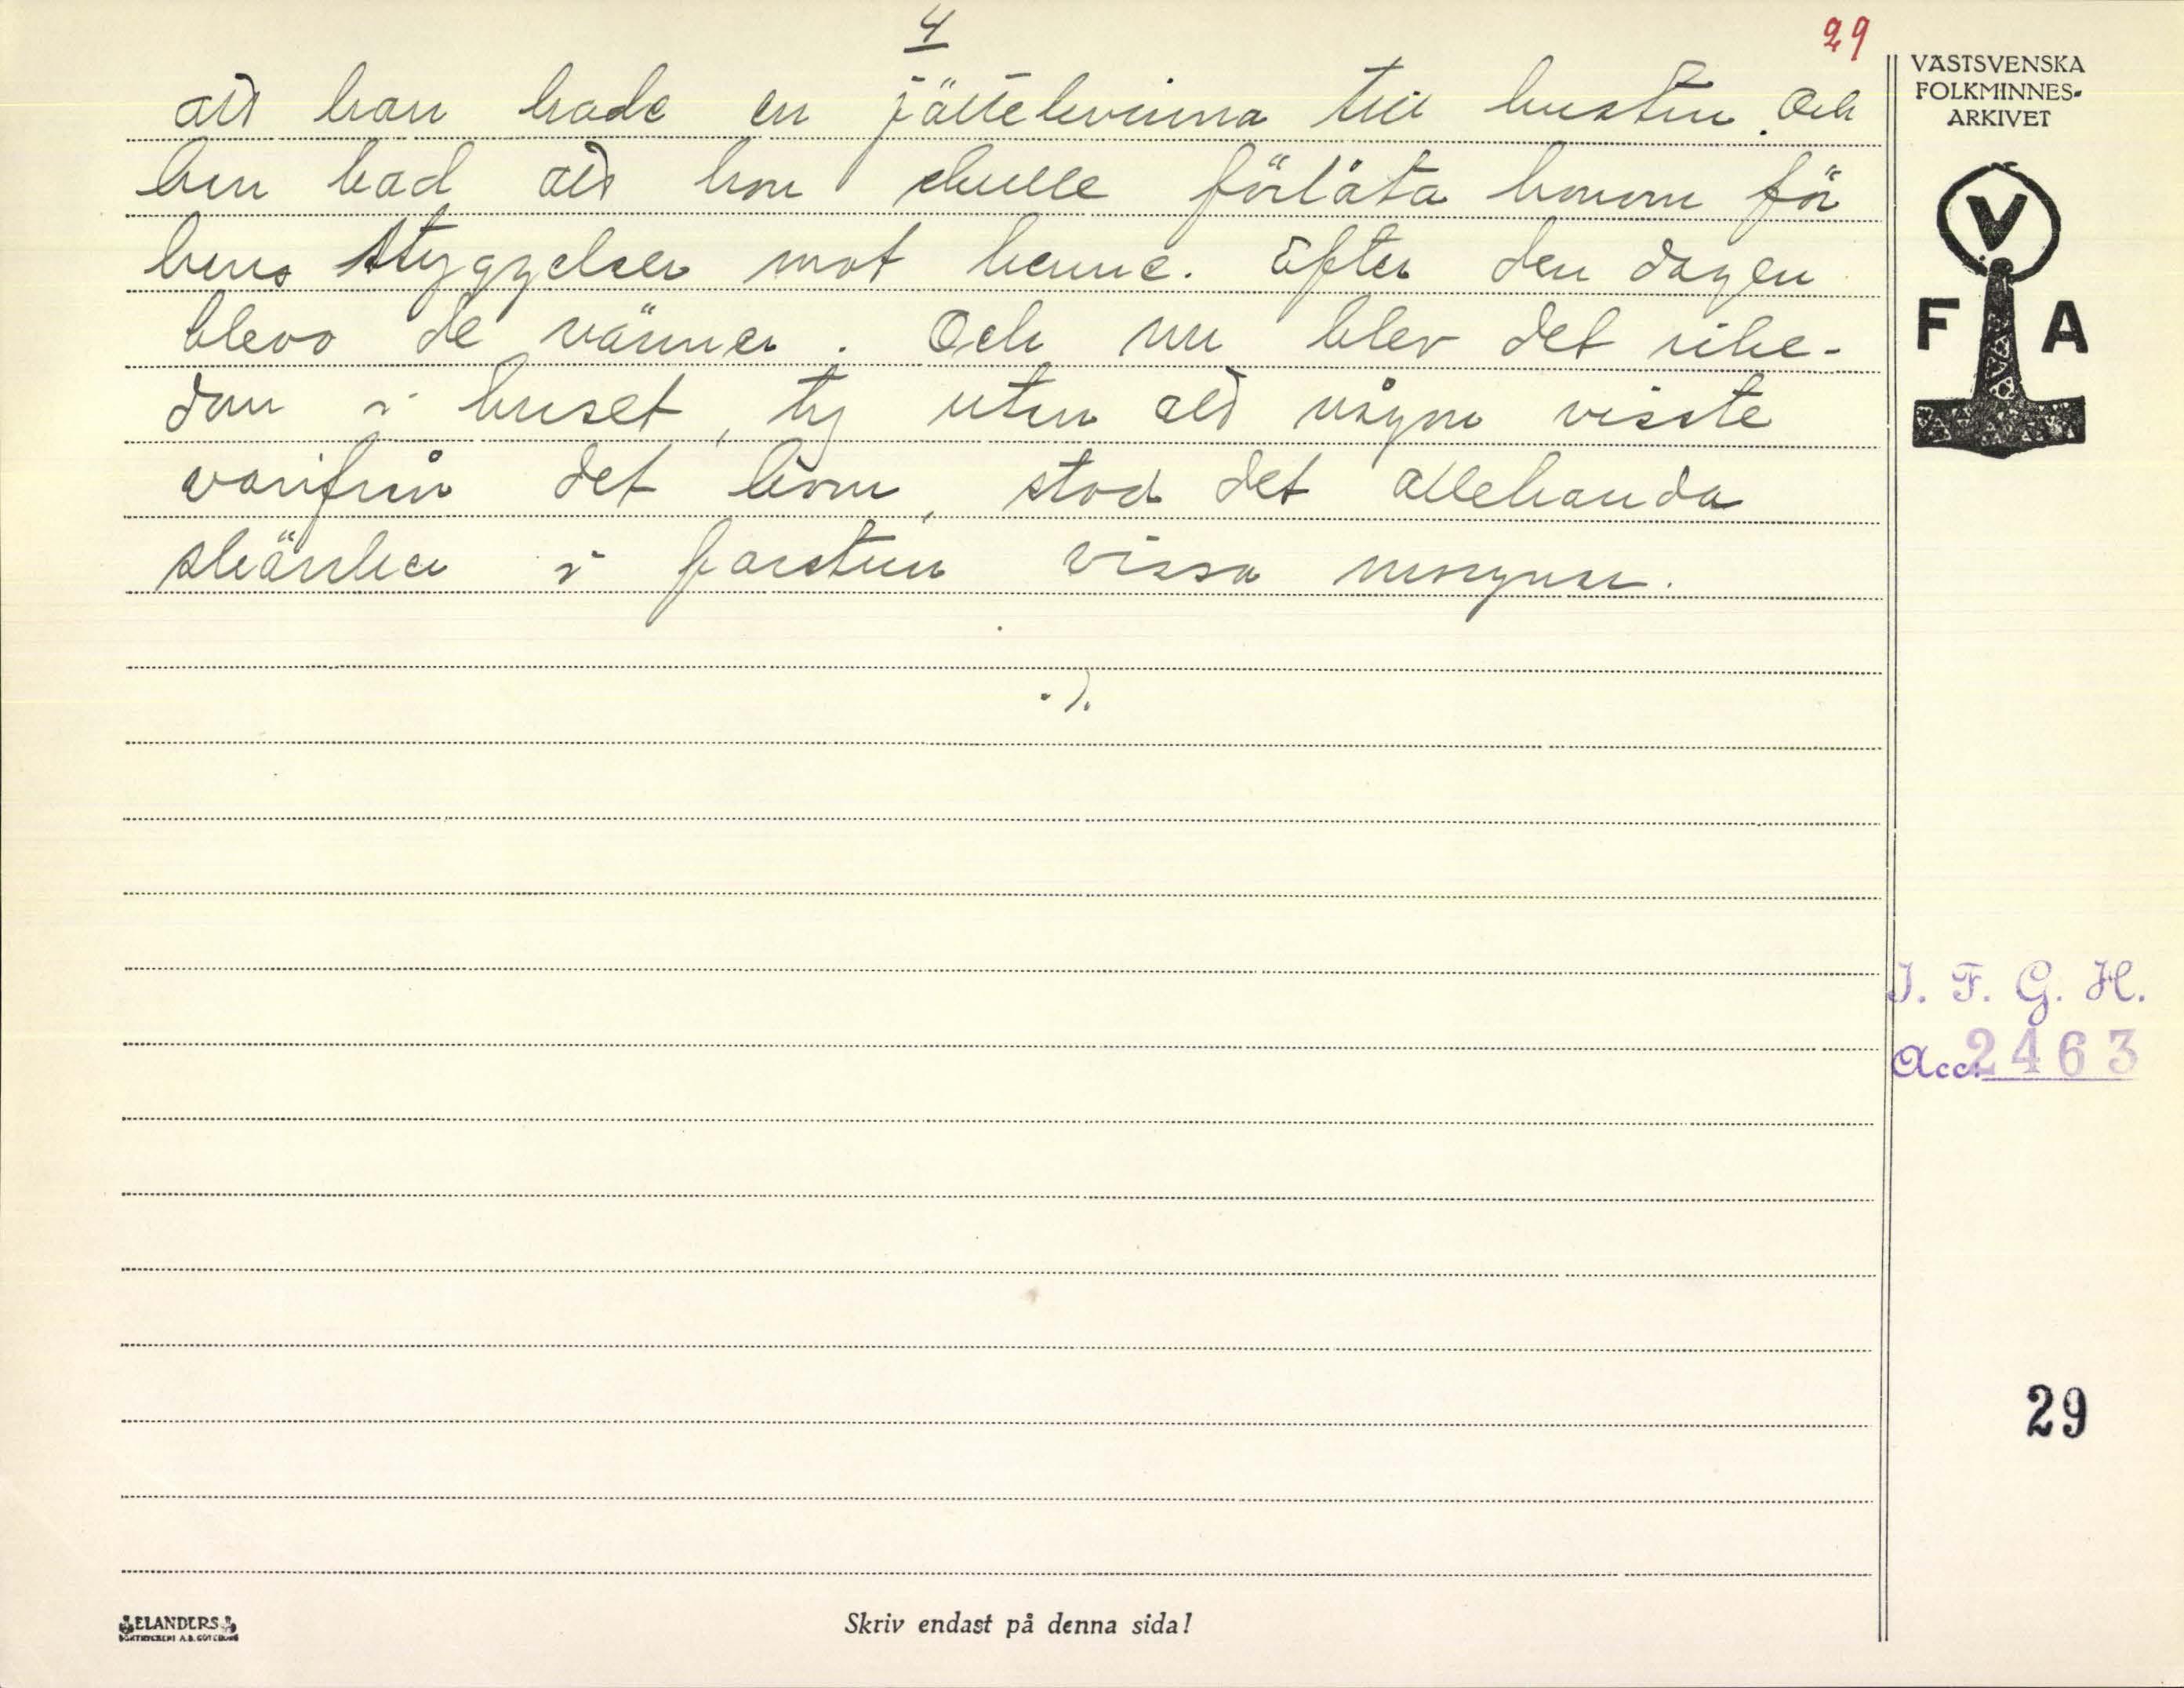 4
29
att han hade en jättekvinna till hustru. Och
han bad att hon skulle förlåta honom för
hans styggelser mot henne. Efter den dagen
blevo de vänner. Och nu blev det rike-
dom i huset, ty utan att någon visste
varifrån det kom, stod det allehanda
skänker i farstun vissa morgnar.
VÄSTSVENSKA
FOLKMINNES-
ARKIVET
V
F A
I. F. G. H.
Acc. 2463
29
ELANDERS
BOKTRYCKERI A.B. GÖTEBORG
Skriv endast på denna sida!